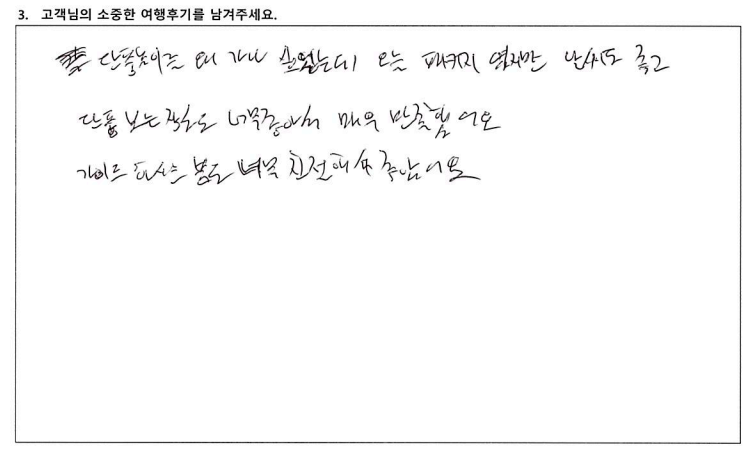 3. 고객님의 소중한 여행후기를 남겨주세요.
단풍놀이를 왜 가나 싶었는데 오늘 패키지 였지만 날씨도 좋고
단풍 보는 장소도 너무좋아서 매우 만족했어요
가이드 버스 분도 너무 친절해서 좋았어요